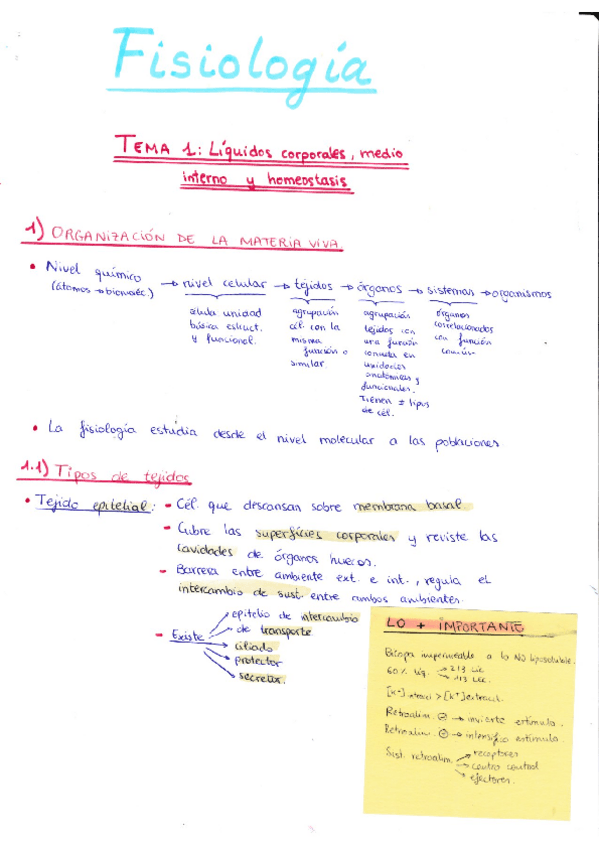 Fisiología
TEMA 1: Líquidos corporales, medio
interno y homeostasis
1) ORGANIZACIÓN DE LA MATERIA VIVA.
• Nivel químico → nivel celular → tejidos → órganos → sistemas → organismos
(átomos → biomoléc.)
célula unidad
básica estruct.
y funcional.
agrupación
cél. con la
misma
función o
similar.
agrupación
tejidos con
una función
común en
unidades
anatómicas y
funcionales.
Tienen ≠ tipos
de cél.
órganos
correlacionados
con función
común
• La fisiología estudia desde el nivel molecular a las poblaciones
1.1) Tipos de tejidos
• Tejido epitelial: - Cél. que descansan sobre membrana basal.
- Cubre las superficies corporales y reviste las
cavidades de órganos huecos.
- Barrera entre ambiente ext. e int., regula el
intercambio de sust. entre ambos ambientes.
- Existe → epitelio de intercambio
→ de transporte
→ ciliado
→ protector
→ secretor.
LO + IMPORTANTE
Bicapa impermeable a lo NO liposoluble.
60% líq. → 2/3 LIC
→ 1/3 LEC.
[K+] intracel > [K+] extracel.
Retroalim. ⊖ → invierte estímulo.
Retroalim. → intensifica estímulo.
Sist. retroalim. → receptores
→ centro control
→ efectores.